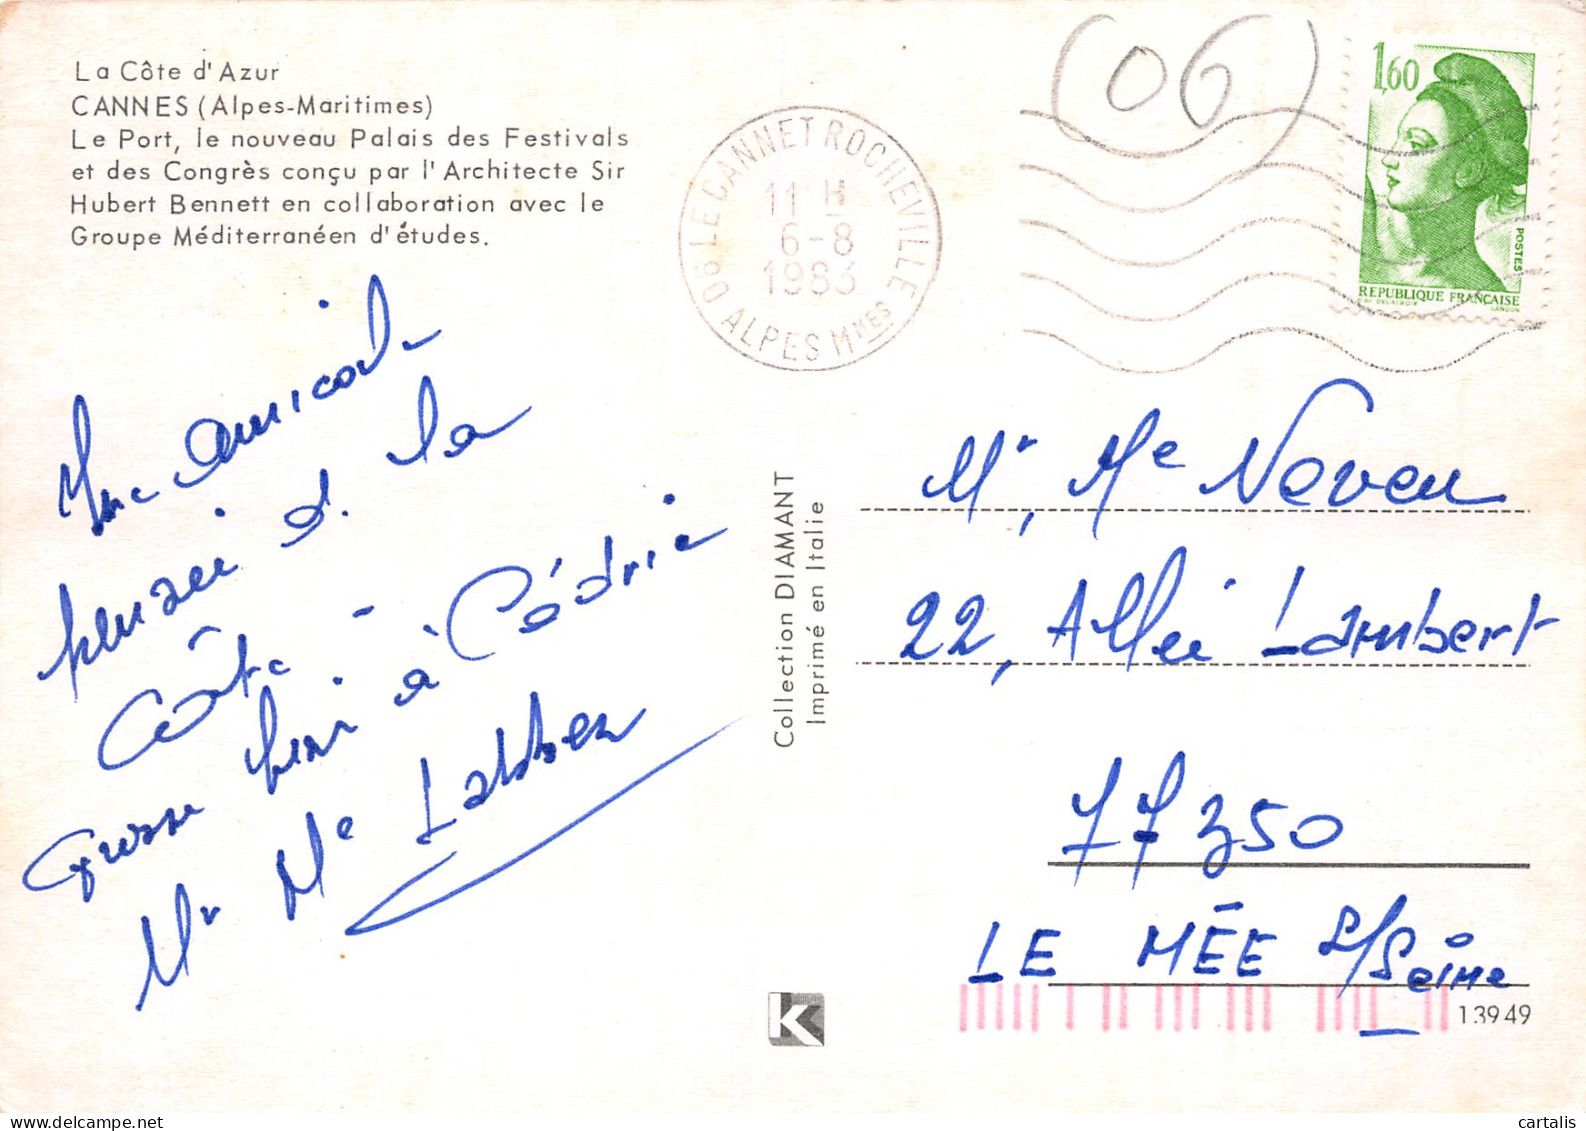 La Côte d'Azur
CANNES (Alpes-Maritimes)
Le Port, le nouveau Palais des Festivals
et des Congrès conçu par l'Architecte Sir
Hubert Bennett en collaboration avec le
Groupe Méditerranéen d'études.
(06)
06 LE CANNET ROCHEVILLE
11 H
6-8
1983
ALPES Mmes
1,60
POSTES
REPUBLIQUE FRANÇAISE
D'AP. DELACROIX GANDON
Une amicale
pensée d. la
Côte
Grosse bisi à Cédric
Mr Me Labbez
Collection DIAMANT
Imprimé en Italie
Mr, Me Neveu
22, Allée Lambert
77350
LE MÉE s/Seine
13949
K
cartalis